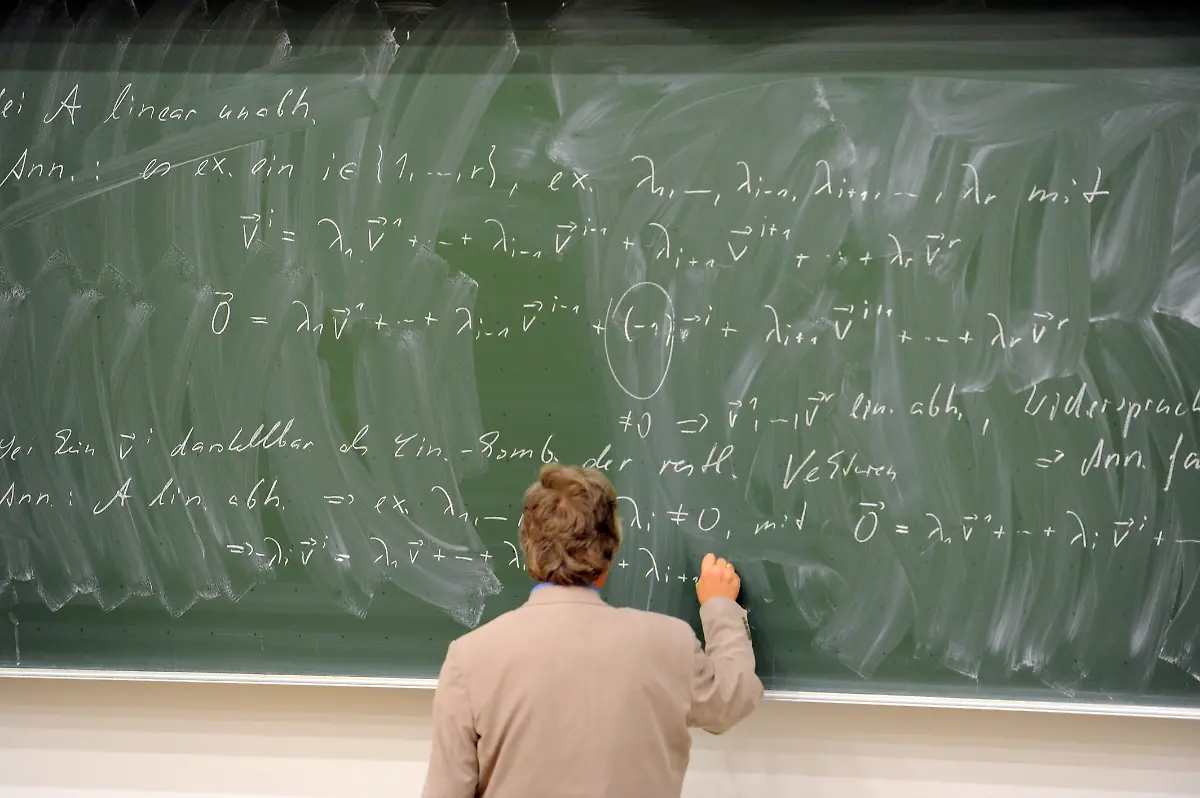 ei A linear unabh.
Ann.: es ex. ein i ∈ {1, ..., r}, ex. λ₁, ..., λᵢ₋₁, λᵢ₊₁, ..., λᵣ mit
v⃗ⁱ = λ₁v⃗¹ + ... + λᵢ₋₁v⃗ⁱ⁻¹ + λᵢ₊₁v⃗ⁱ⁺¹ + ... + λᵣv⃗ʳ
0⃗ = λ₁v⃗¹ + ... + λᵢ₋₁v⃗ⁱ⁻¹ + (-1)v⃗ⁱ + λᵢ₊₁v⃗ⁱ⁺¹ + ... + λᵣv⃗ʳ
≠0 ⇒ v⃗¹, ..., v⃗ʳ lin. abh., Widerspruch
Sei kein v⃗ⁱ darstellbar als Lin.-Komb. der restl. Vektoren ⇒ Ann. fa
Ann.: A lin. abh. ⇒ ex. λ₁, ..., λᵢ ≠ 0, mit 0⃗ = λ₁v⃗¹ + ... + λᵢv⃗ⁱ + ...
⇒ -λᵢv⃗ⁱ = λ₁v⃗¹ + ... + λᵢ + λᵢ₊